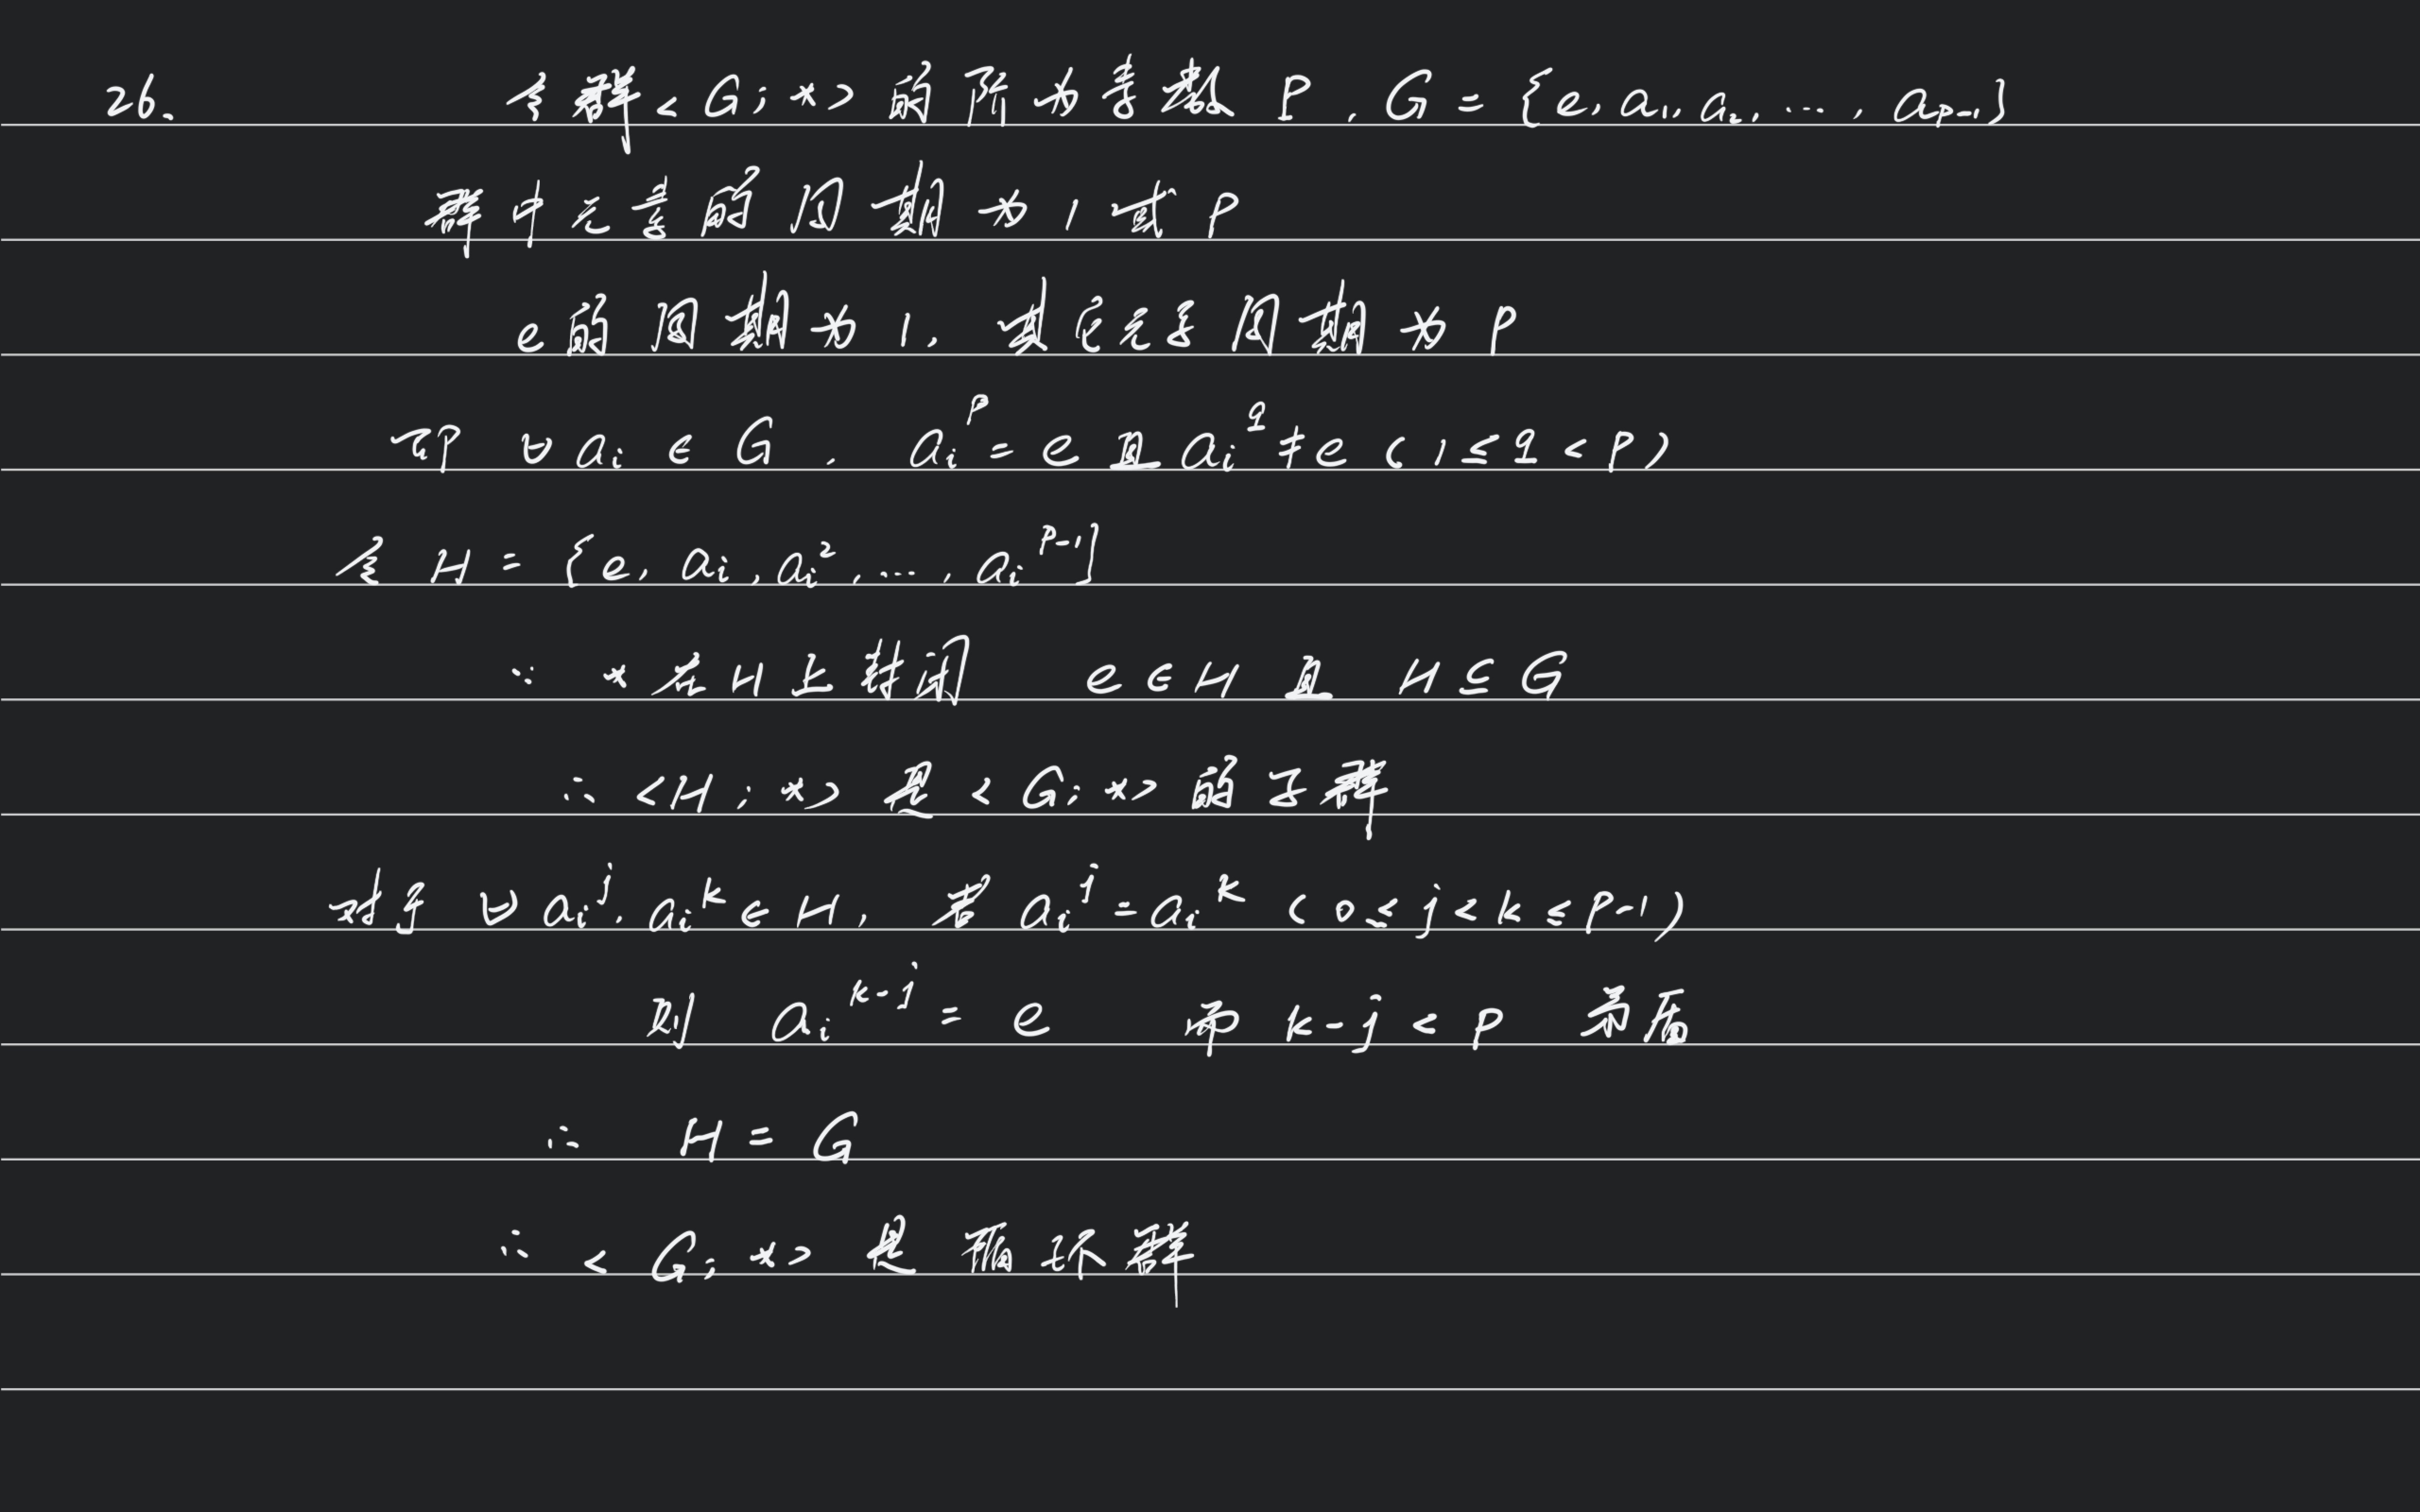 26. 令群<G;*>的阶为素数 P, G={e, a₁, a₂, ..., aₚ₋₁}
群中元素的周期为1或P
e的周期为1, 其它元素周期为P
即 ∀aᵢ∈G, aᵢᵖ=e且aᵢ^q≠e (1≤q<P)
令 H={e, aᵢ, aᵢ², ..., aᵢᵖ⁻¹}
∵ *在H上封闭 e∈H 且 H⊆G
∴ <H;*>是<G;*>的子群
对于∀aᵢʲ, aᵢᵏ∈H, 若 aᵢʲ=aᵢᵏ (0≤j<k≤P-1)
则 aᵢᵏ⁻ʲ=e 而 k-j<P 矛盾
∴ H=G
∴ <G;*>是循环群